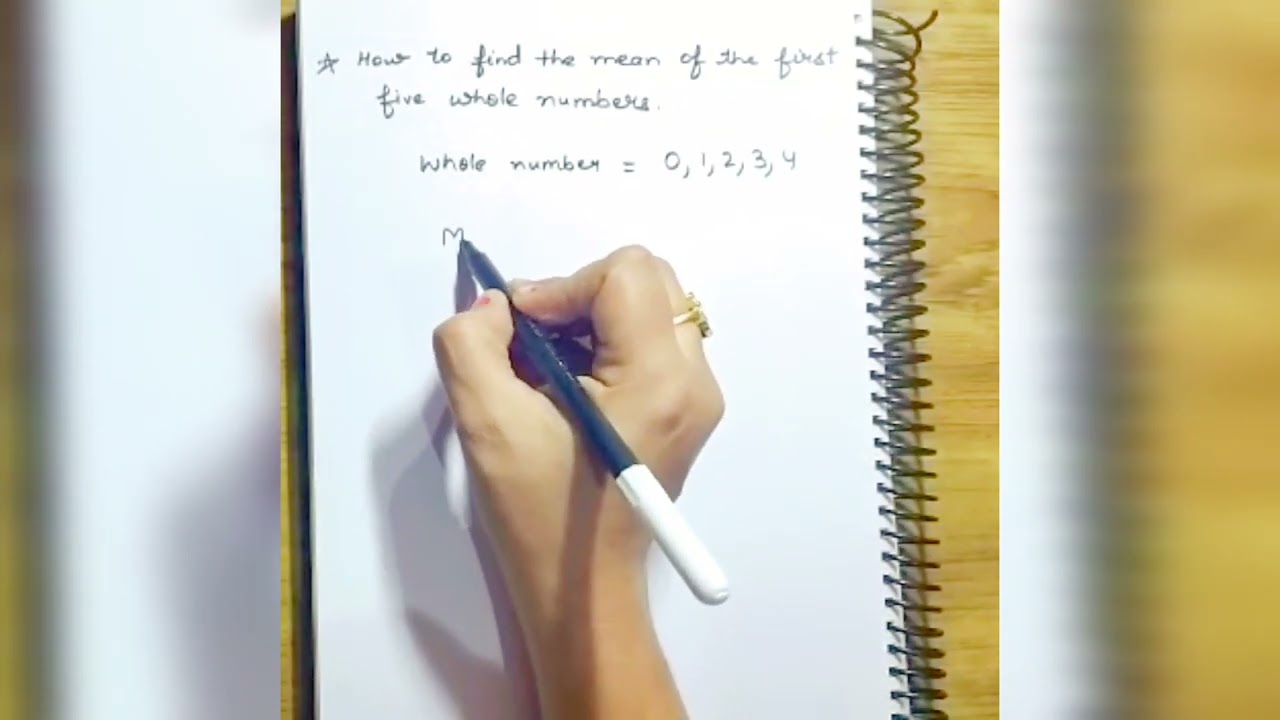 ☆ How to find the mean of the first
five whole numbers.
Whole number = 0, 1, 2, 3, 4
M